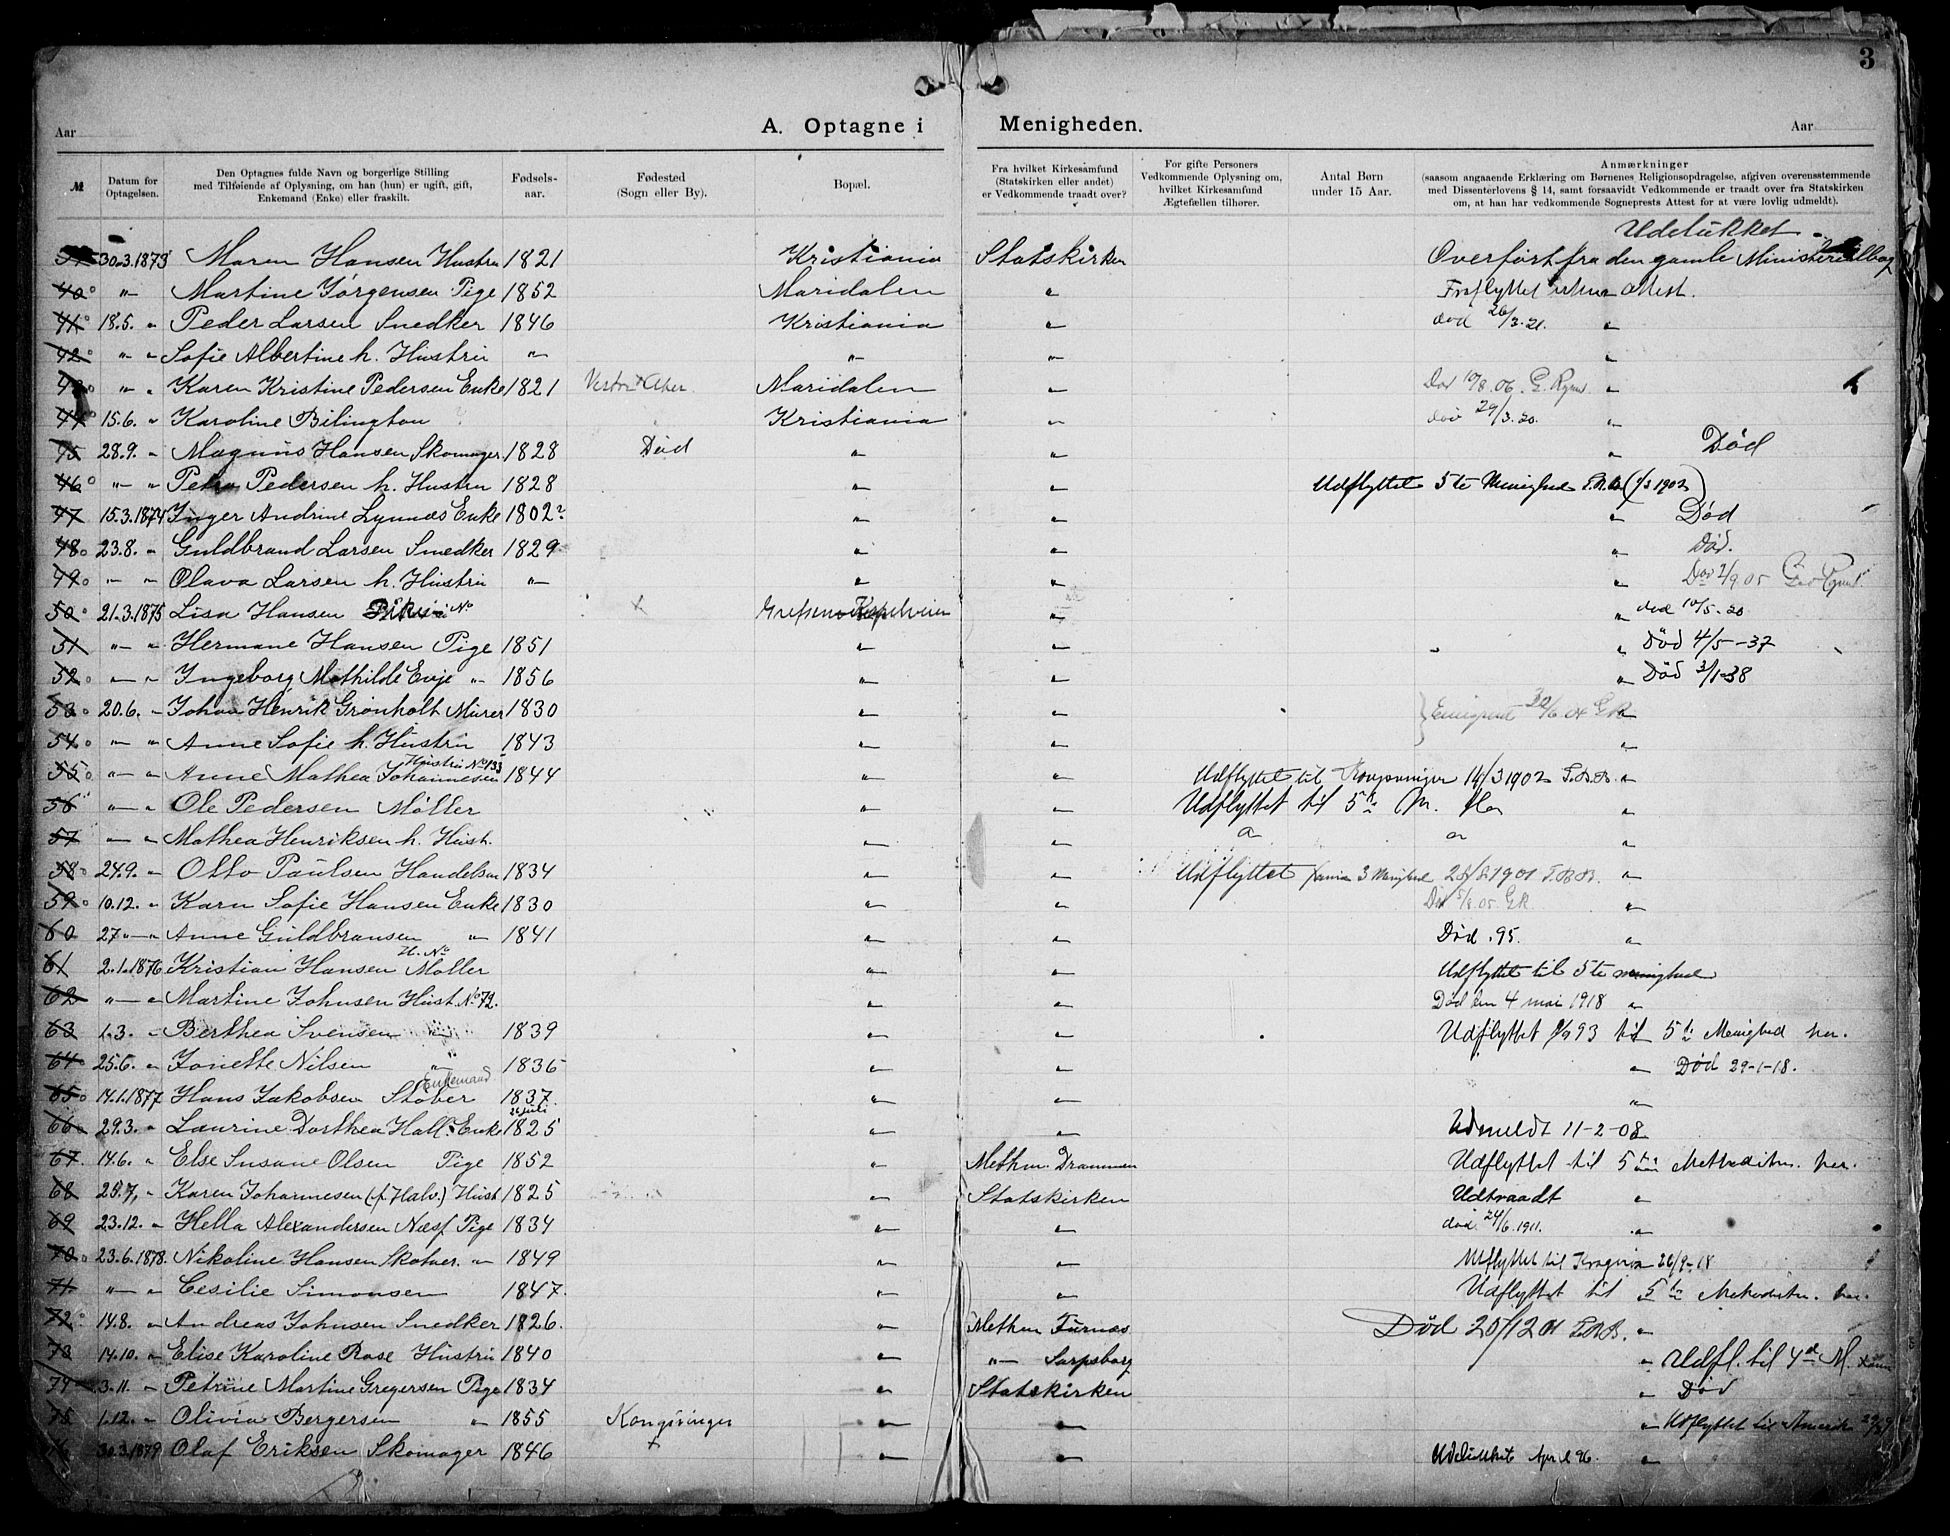 3
Aar
A. Optagne i Menigheden.
Aar
№
Datum for Optagelsen.
Den Optagnes fulde Navn og borgerlige Stilling
med Tilføiende af Oplysning, om han (hun) er ugift, gift,
Enkemand (Enke) eller fraskilt.
Fødsels-
aar.
Fødested
(Sogn eller By).
Bopæl.
Fra hvilket Kirkesamfund
(Statskirken eller andet)
er Vedkommende traadt over?
For gifte Personers
Vedkommende Oplysning om,
hvilket Kirkesamfund
Ægtefællen tilhører.
Antal Børn
under 15 Aar.
Anmærkninger
(saasom angaaende Erklæring om Børnenes Religionsopdragelse, afgiven overensstemmende
med Dissenterlovens § 14, samt forsaavidt Vedkommende er traadt over fra Statskirken
om, at han har vedkommende Sogneprests Attest for at være lovlig udmeldt).
Udelukket
30.3.1873 Maren Hansen Hustru 1821 Kristiania Statskirken Overført fra den gamle Ministerialbog
40 " Martine Jørgensen Pige 1852 Maridalen " Fraflyttet uden Attest.
41 18.5. " Peder Larsen Snedker 1846 Kristiania " død 26/3-21. "
42 " " Sofie Albertine h. Hustru " " " "
43 " " Karen Kristine Pedersen Enke 1821 Vestre Aker Maridalen " Død 10/8 06. "
44 15.6. " Karoline Bilington Kristiania " død 29/3.20. "
45 28.9. " Magnus Hansen Skomager 1828 Død " " " Død
46 " " Petra Pedersen h. Hustru 1828 " " Udflyttet 5te Menighed
47 15.3.1874 Inger Andrine Lynnæs Enke 1802? " " " Død
48 23.8. " Guldbrand Larsen Snedker 1829 " " " Død.
49 " " Olava Larsen h. Hustru " " " "
50 21.3.1875 Lisa Hansen " " død 10/5-20
51 " " Hermane Hansen Pige 1851 " " " Død 4/5-37
52 " " Ingeborg Mathilde Evje " 1856 " " " Død 3/1-38
53 20.6. " Johan Henrik Grønholt Murer 1830 " " "
54 " " Anne Sofie h. Hustru 1843 " " "
55 " " Anne Mathea Johannesen Hustru No 133 1844 " " Udflyttet til Kongsvinger 14/3 1902 "
56 " " Ole Pedersen Møller " " Udflyttet til 5te M. "
57 " " Mathea Henriksen h. Hust. " " " " "
58 24.9. " Otto Paulsen 1834 " " Udflyttet 3 Menighed 1901 "
59 10.12. " Karn Sofie Hansen Enke 1830 " " "
60 27 " " Anne Guldbransen " 1841 " " Død .95. "
61 2.1.1876 Kristian Hansen Møller " " Udflyttet til 5te menighed
62 " " Martine Johnsen Hust. No 72. " " Død den 4 mai 1918 "
63 1.3. " Berthea Svensen 1839 " " Udflyttet 93 til 5te Menighed her.
64 25.6. " Jonette Nilsen " 1836 " " " Død 29-1-18.
65 14.1.1877 Hans Jakobsen Støber Enkemand 1837. " " "
66 29.3. " Laurine Dorthea Hall. Enke 26 juli 1825 " " Udmeldt 11-2-08
67. 14.6. " Else Susane Olsen Pige 1852 " Methm. Drammen Udflyttet til 5te Methodistm. her.
68 25.7. " Karen Johannesen (f. Halv.) Hust 1825 " Statskirken Udtraadt "
69 23.12. " Hella Alexandersen Næsf. Pige 1834 " " død 24/6.1911. "
70 23.6.1878. Nikoline Hansen " 1849 " "
71 " " Cesilie Simonsen 1847. " " Udflyttet til 5te Methodistm. her.
72 14.8. " Andreas Johnsen Snedker 1826. " Methm Furnæs Død 20/12 01 "
73 14.10. " Elise Karoline Rose Hustru 1840 " " Sarpsborg " Udfl. til 4de M.
74 3.11. " Petrine Martine Gregersen Pige 1834 " Statskirken " Død
75 1.12. " Olivia Bergersen " 1855 Kongsvinger " " " Udflyttet til Amerik
30.3.1879 Olaf Eriksen Skomager 1846 " " Udelukket April 96. "